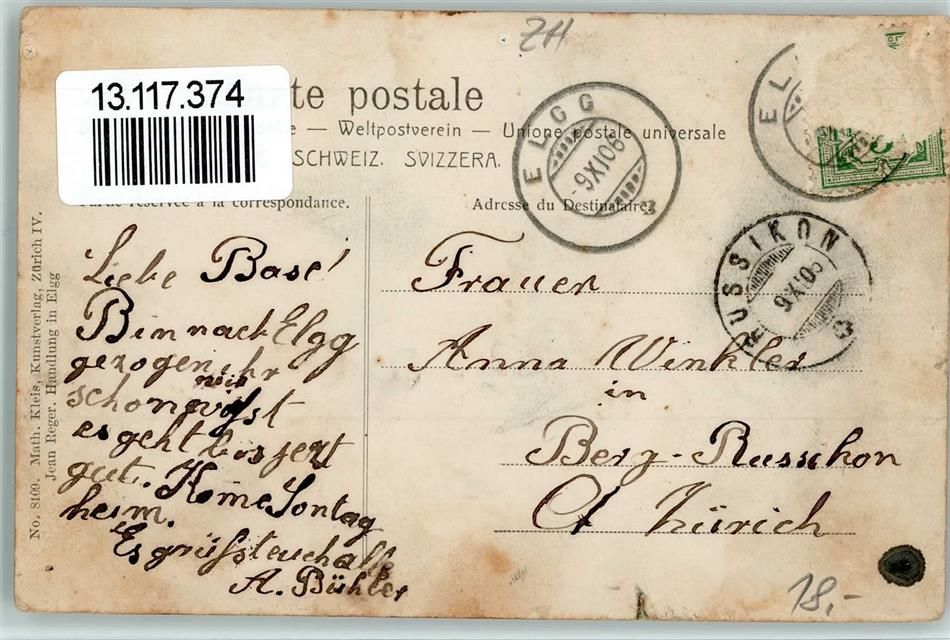 ZH
13.117.374
te postale
e — Weltpostverein — Unione postale universale
SCHWEIZ. SVIZZERA.
réservée à la correspondance.
Adresse du Destinataire
ELGG
9 XI 06
EL
RUSSIKON
9 XI 06
No. 8109. Math. Kleis, Kunstverlag, Zürich IV.
Jean Reger. Handlung in Elgg
Liebe Base!
Bin nach Elgg
gezogen ihr
schon wist
es geht bis jezt
gut. Kome Sontag
heim.
Es grüsst euch alle
A. Bühler
Frauen
Anna Winkler
in
Berg-Russikon
Ct Zürich
18,-